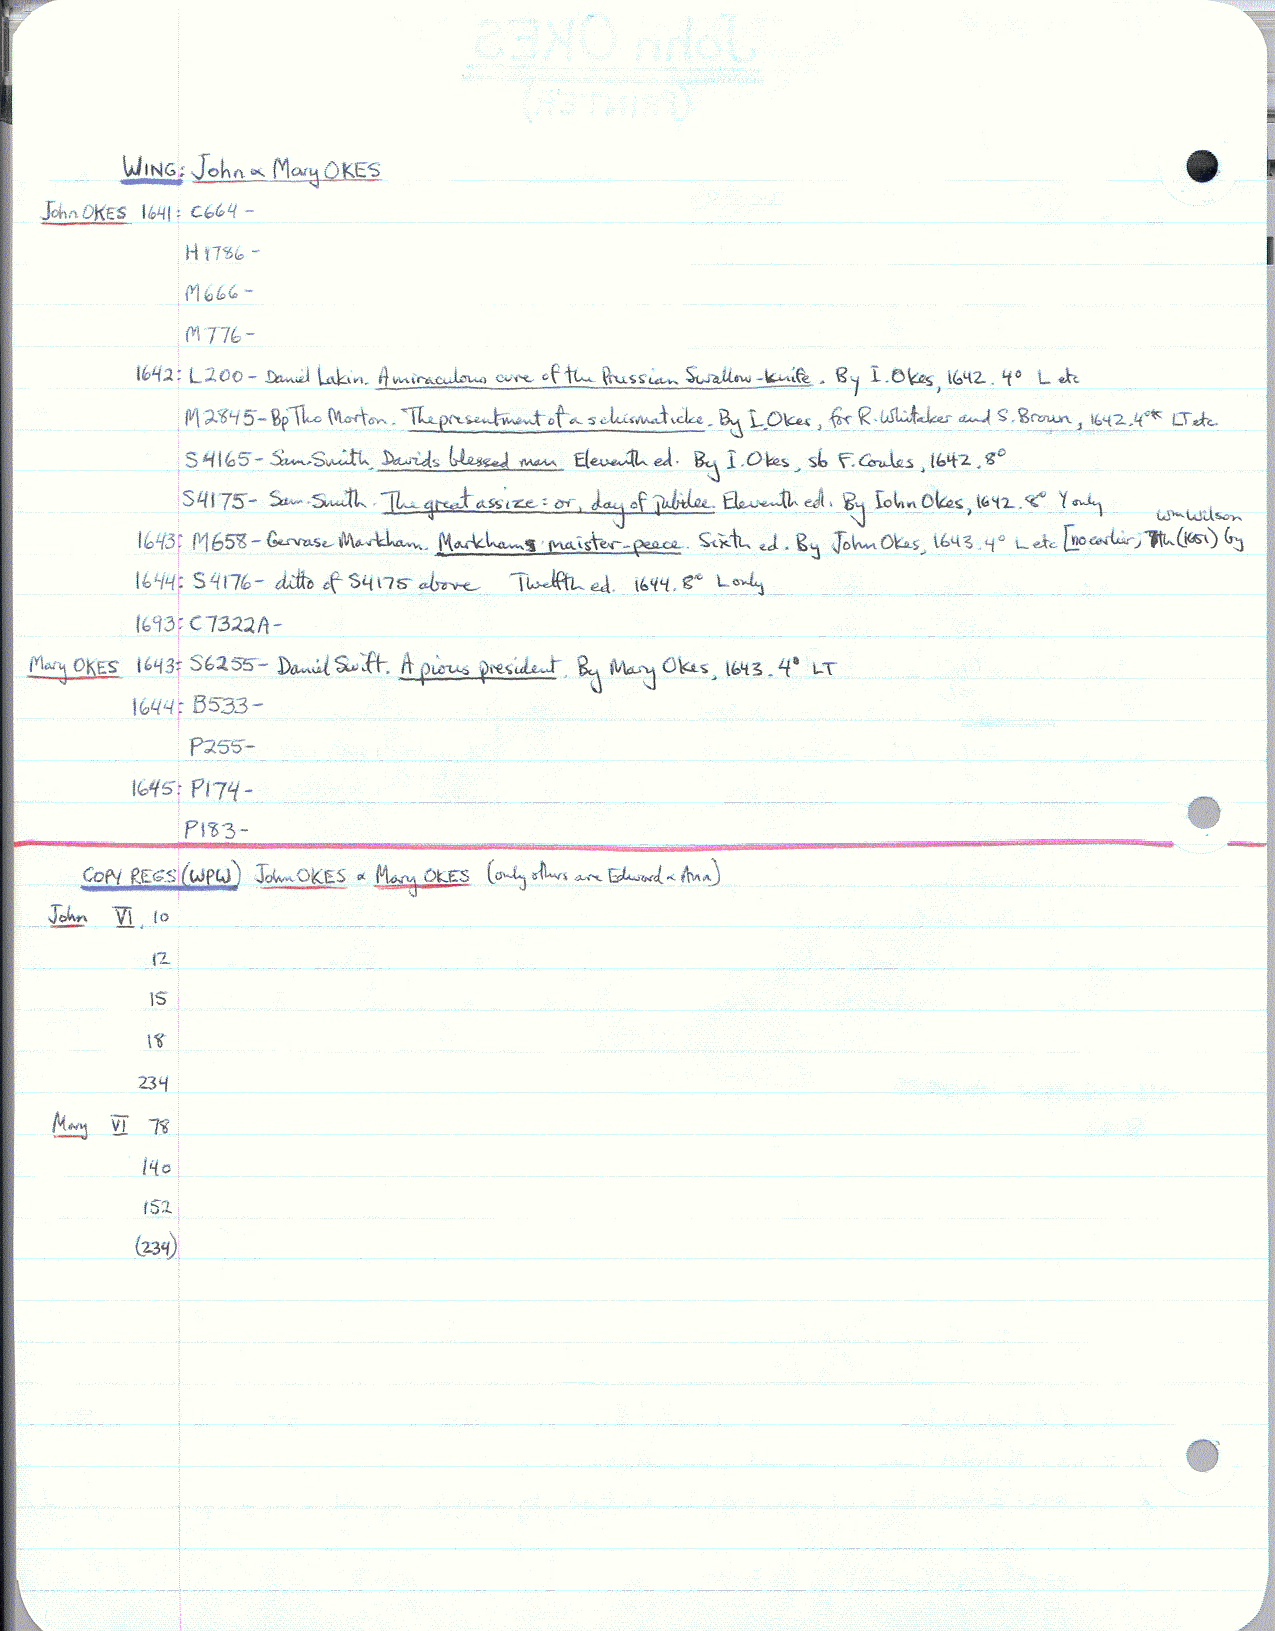 WING: John & Mary OKES
John OKES 1641: C664 -
H1786 -
M666 -
M776 -
1642: L200 - Daniel Lakin. A miraculous cure of the Prussian Swallow-knife. By I. Okes, 1642. 4° L etc
M2845 - Bp Tho Morton. The presentment of a schismaticke. By I. Okes, for R. Whitaker and S. Broun, 1642. 4° LT etc.
S4165 - Sam. Smith. Davids blessed man Eleventh ed. By I. Okes, sb F. Coules, 1642. 8°
S4175 - Sam. Smith. The great assize: or, day of jubilee. Eleventh ed. By Iohn Okes, 1642. 8° Y only
Wm Wilson
1643: M658 - Gervase Markham. Markhams maister-peece. Sixth ed. By John Okes, 1643. 4° L etc [no earlier; 7th (1651) by
1644: S4176 - ditto of S4175 above Twelfth ed. 1644. 8° L only
1693: C7322A -
Mary OKES 1643: S6255 - Daniel Swift. A pious president. By Mary Okes, 1643. 4° LT
1644: B533 -
P255 -
1645: P174 -
P183 -
COPY REGS (WPW) John OKES & Mary OKES (only others are Edward & Ann)
John VI, 10
12
15
18
234
Mary VI 78
140
152
(234)